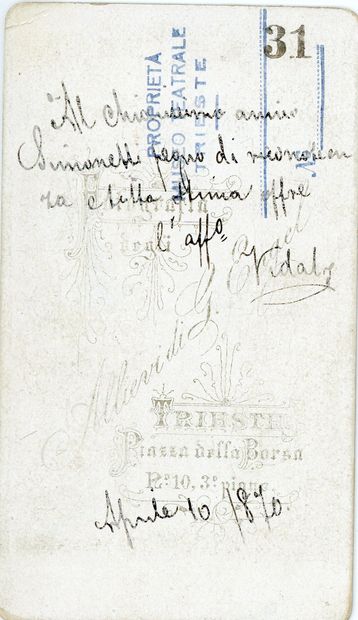 31
PROPRIETÀ
MUSEO TEATRALE
TRIESTE
N.
Al Chiarissimo amico
Simonetti pegno di riconoscen
za e tutta stima offre
l'affº
Vidaly
Fotografia
degli
Allievi di G. Engel
TRIESTE
Piazza della Borsa
Nº 10, 3º piano.
Aprile 10 1870